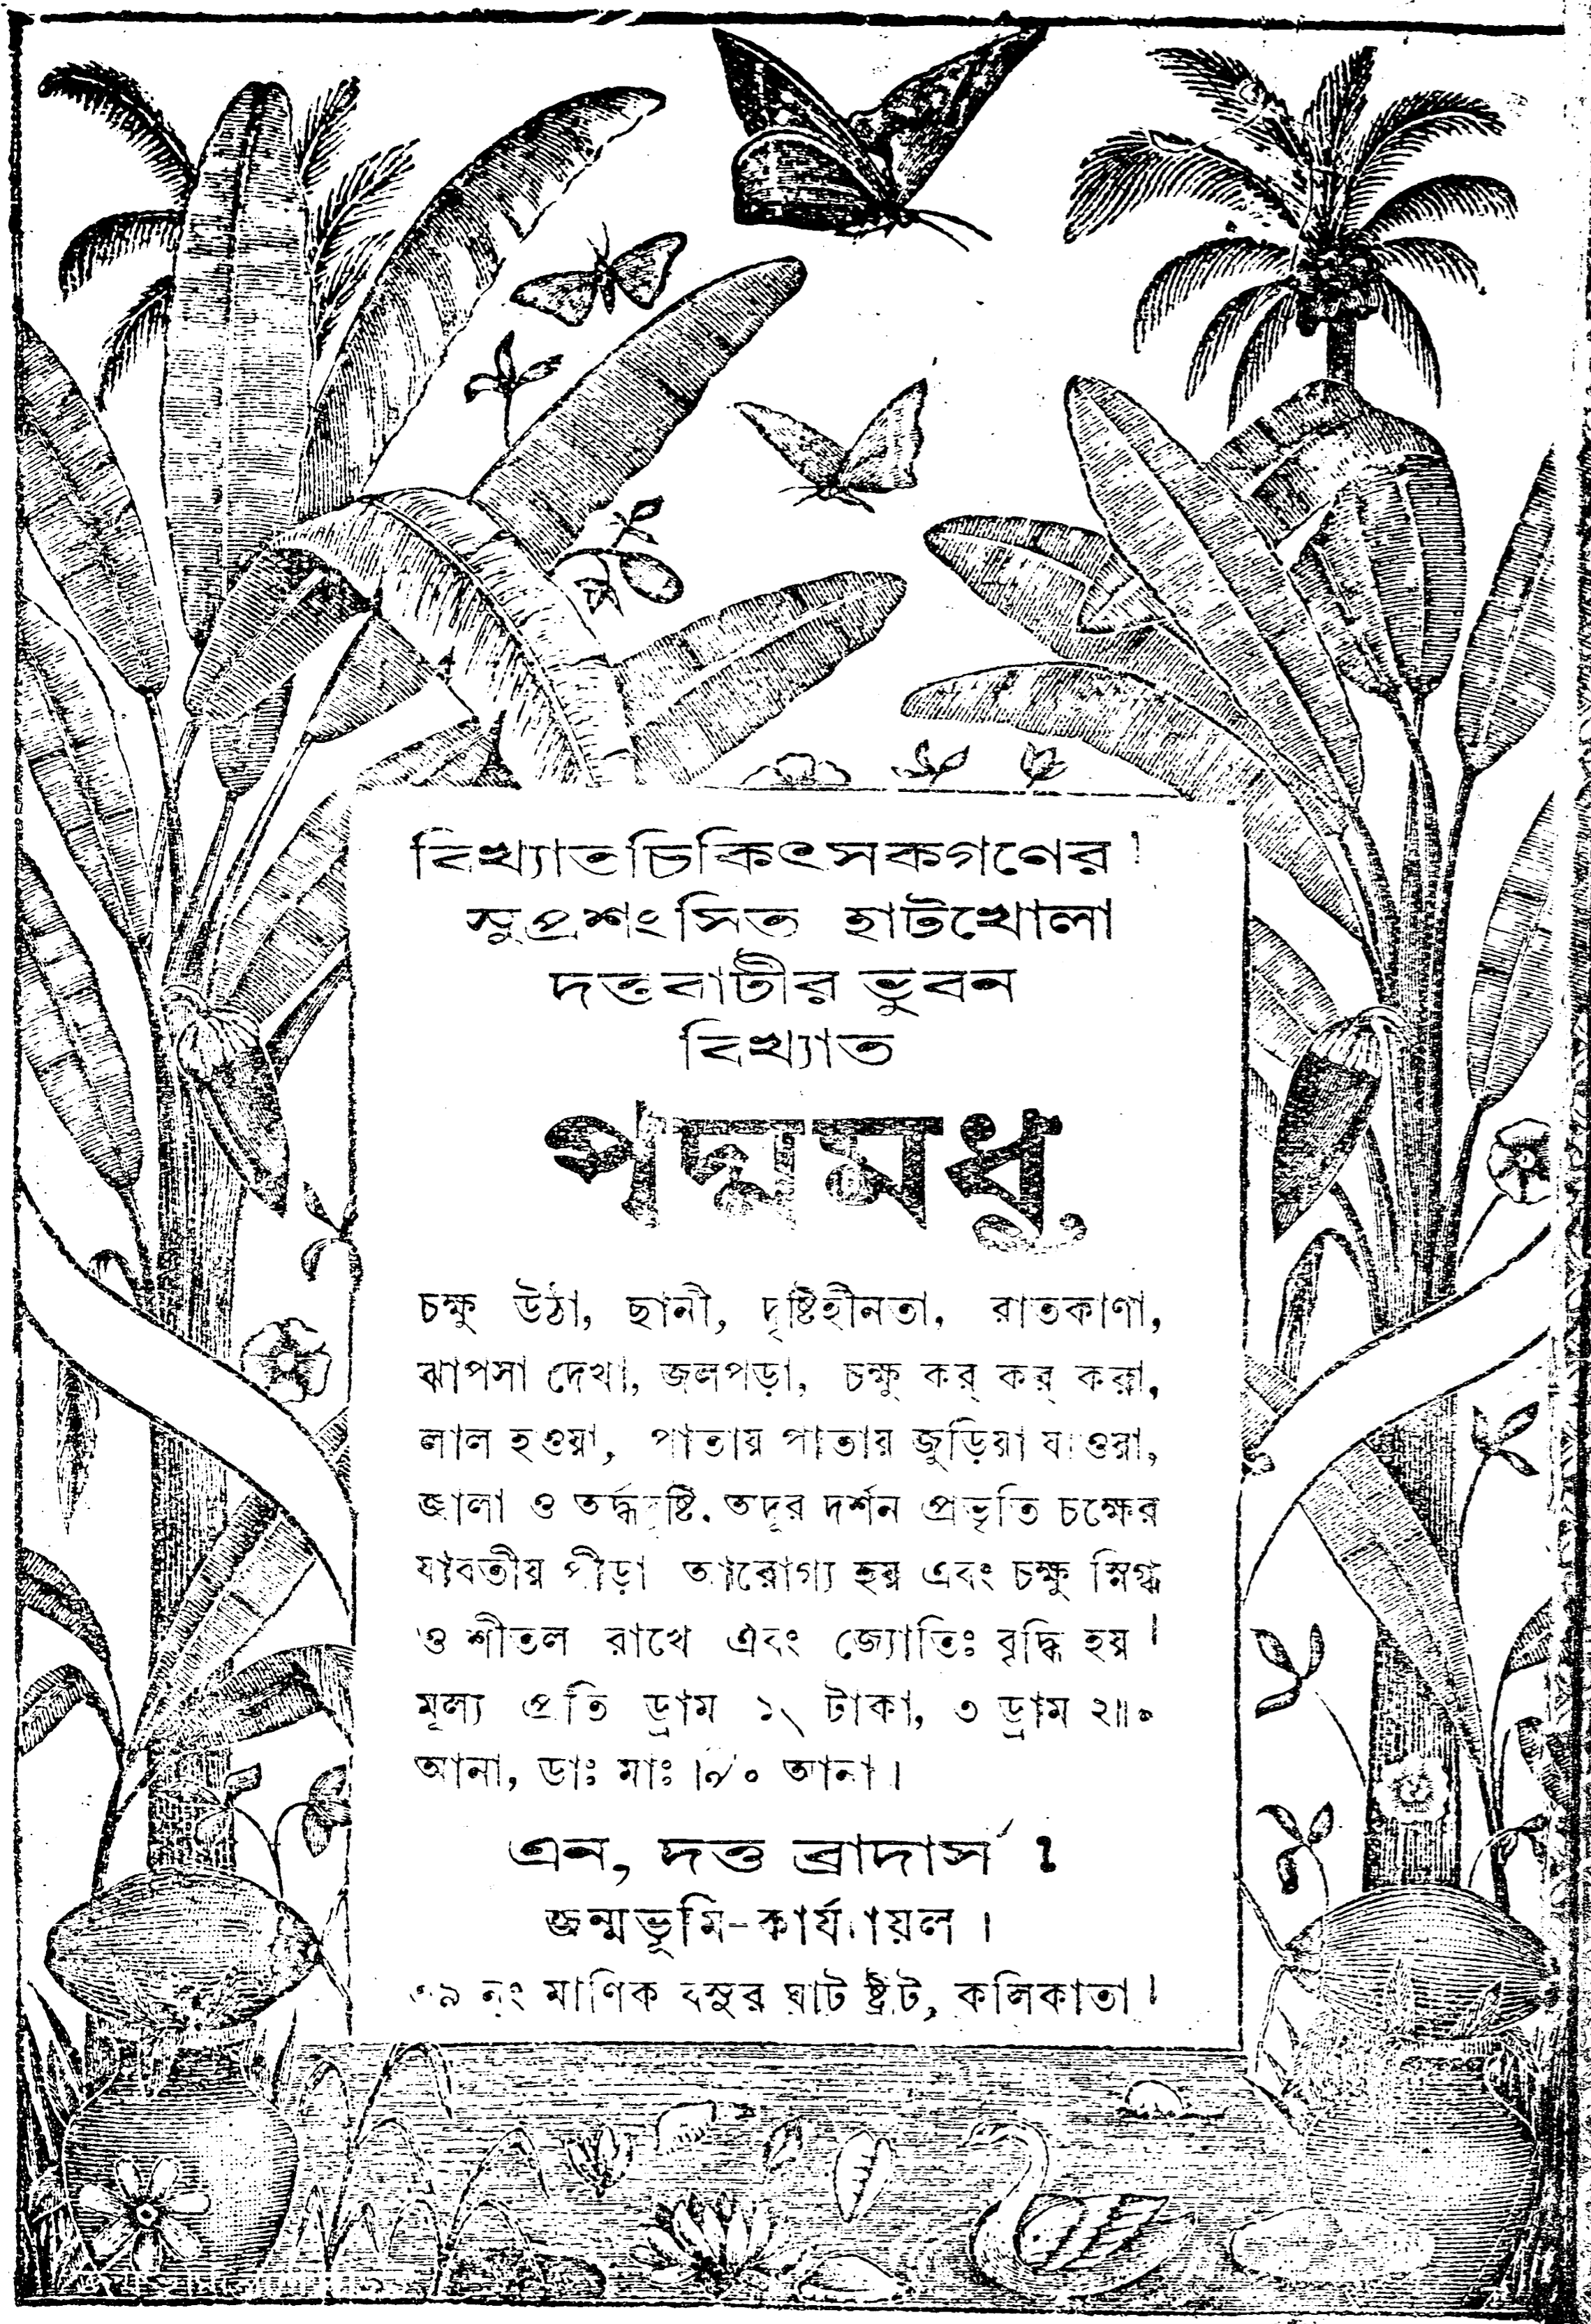 বিখ্যাতচিকিৎসকগণের।
সুপ্রশংসিত হাটখোলা
দত্তবাটীর ভুবন
বিখ্যাত
পদ্মমধু
চক্ষু উঠা, ছানী, দৃষ্টিহীনতা, রাতকাণা,
ঝাপসা দেখা, জলপড়া, চক্ষু কর্ কর্ করা,
লাল হওয়া, পাতায় পাতায় জুড়িয়া যাওয়া,
জ্বালা ও অর্দ্ধদৃষ্টি, অদূর দর্শন প্রভৃতি চক্ষের
যাবতীয় পীড়া আরোগ্য হয় এবং চক্ষু স্নিগ্ধ
ও শীতল রাখে এবং জ্যোতিঃ বৃদ্ধি হয়।
মূল্য প্রতি ড্রাম ১৲ টাকা, ৩ ড্রাম ২॥০
আনা, ডাঃ মাঃ ।৵০ আনা।
এন, দত্ত ব্রাদার্স।
জন্মভূমি-কার্য্যায়ল।
নং মাণিক বসুর ঘাট ষ্ট্রীট, কলিকাতা।